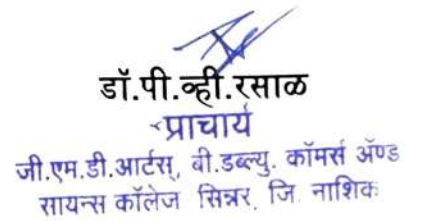 डॉ.पी.व्ही.रसाळ
प्राचार्य
जी.एम.डी.आर्टस्, बी.डब्ल्यु. कॉमर्स ॲण्ड
सायन्स कॉलेज सिन्नर, जि नाशिक